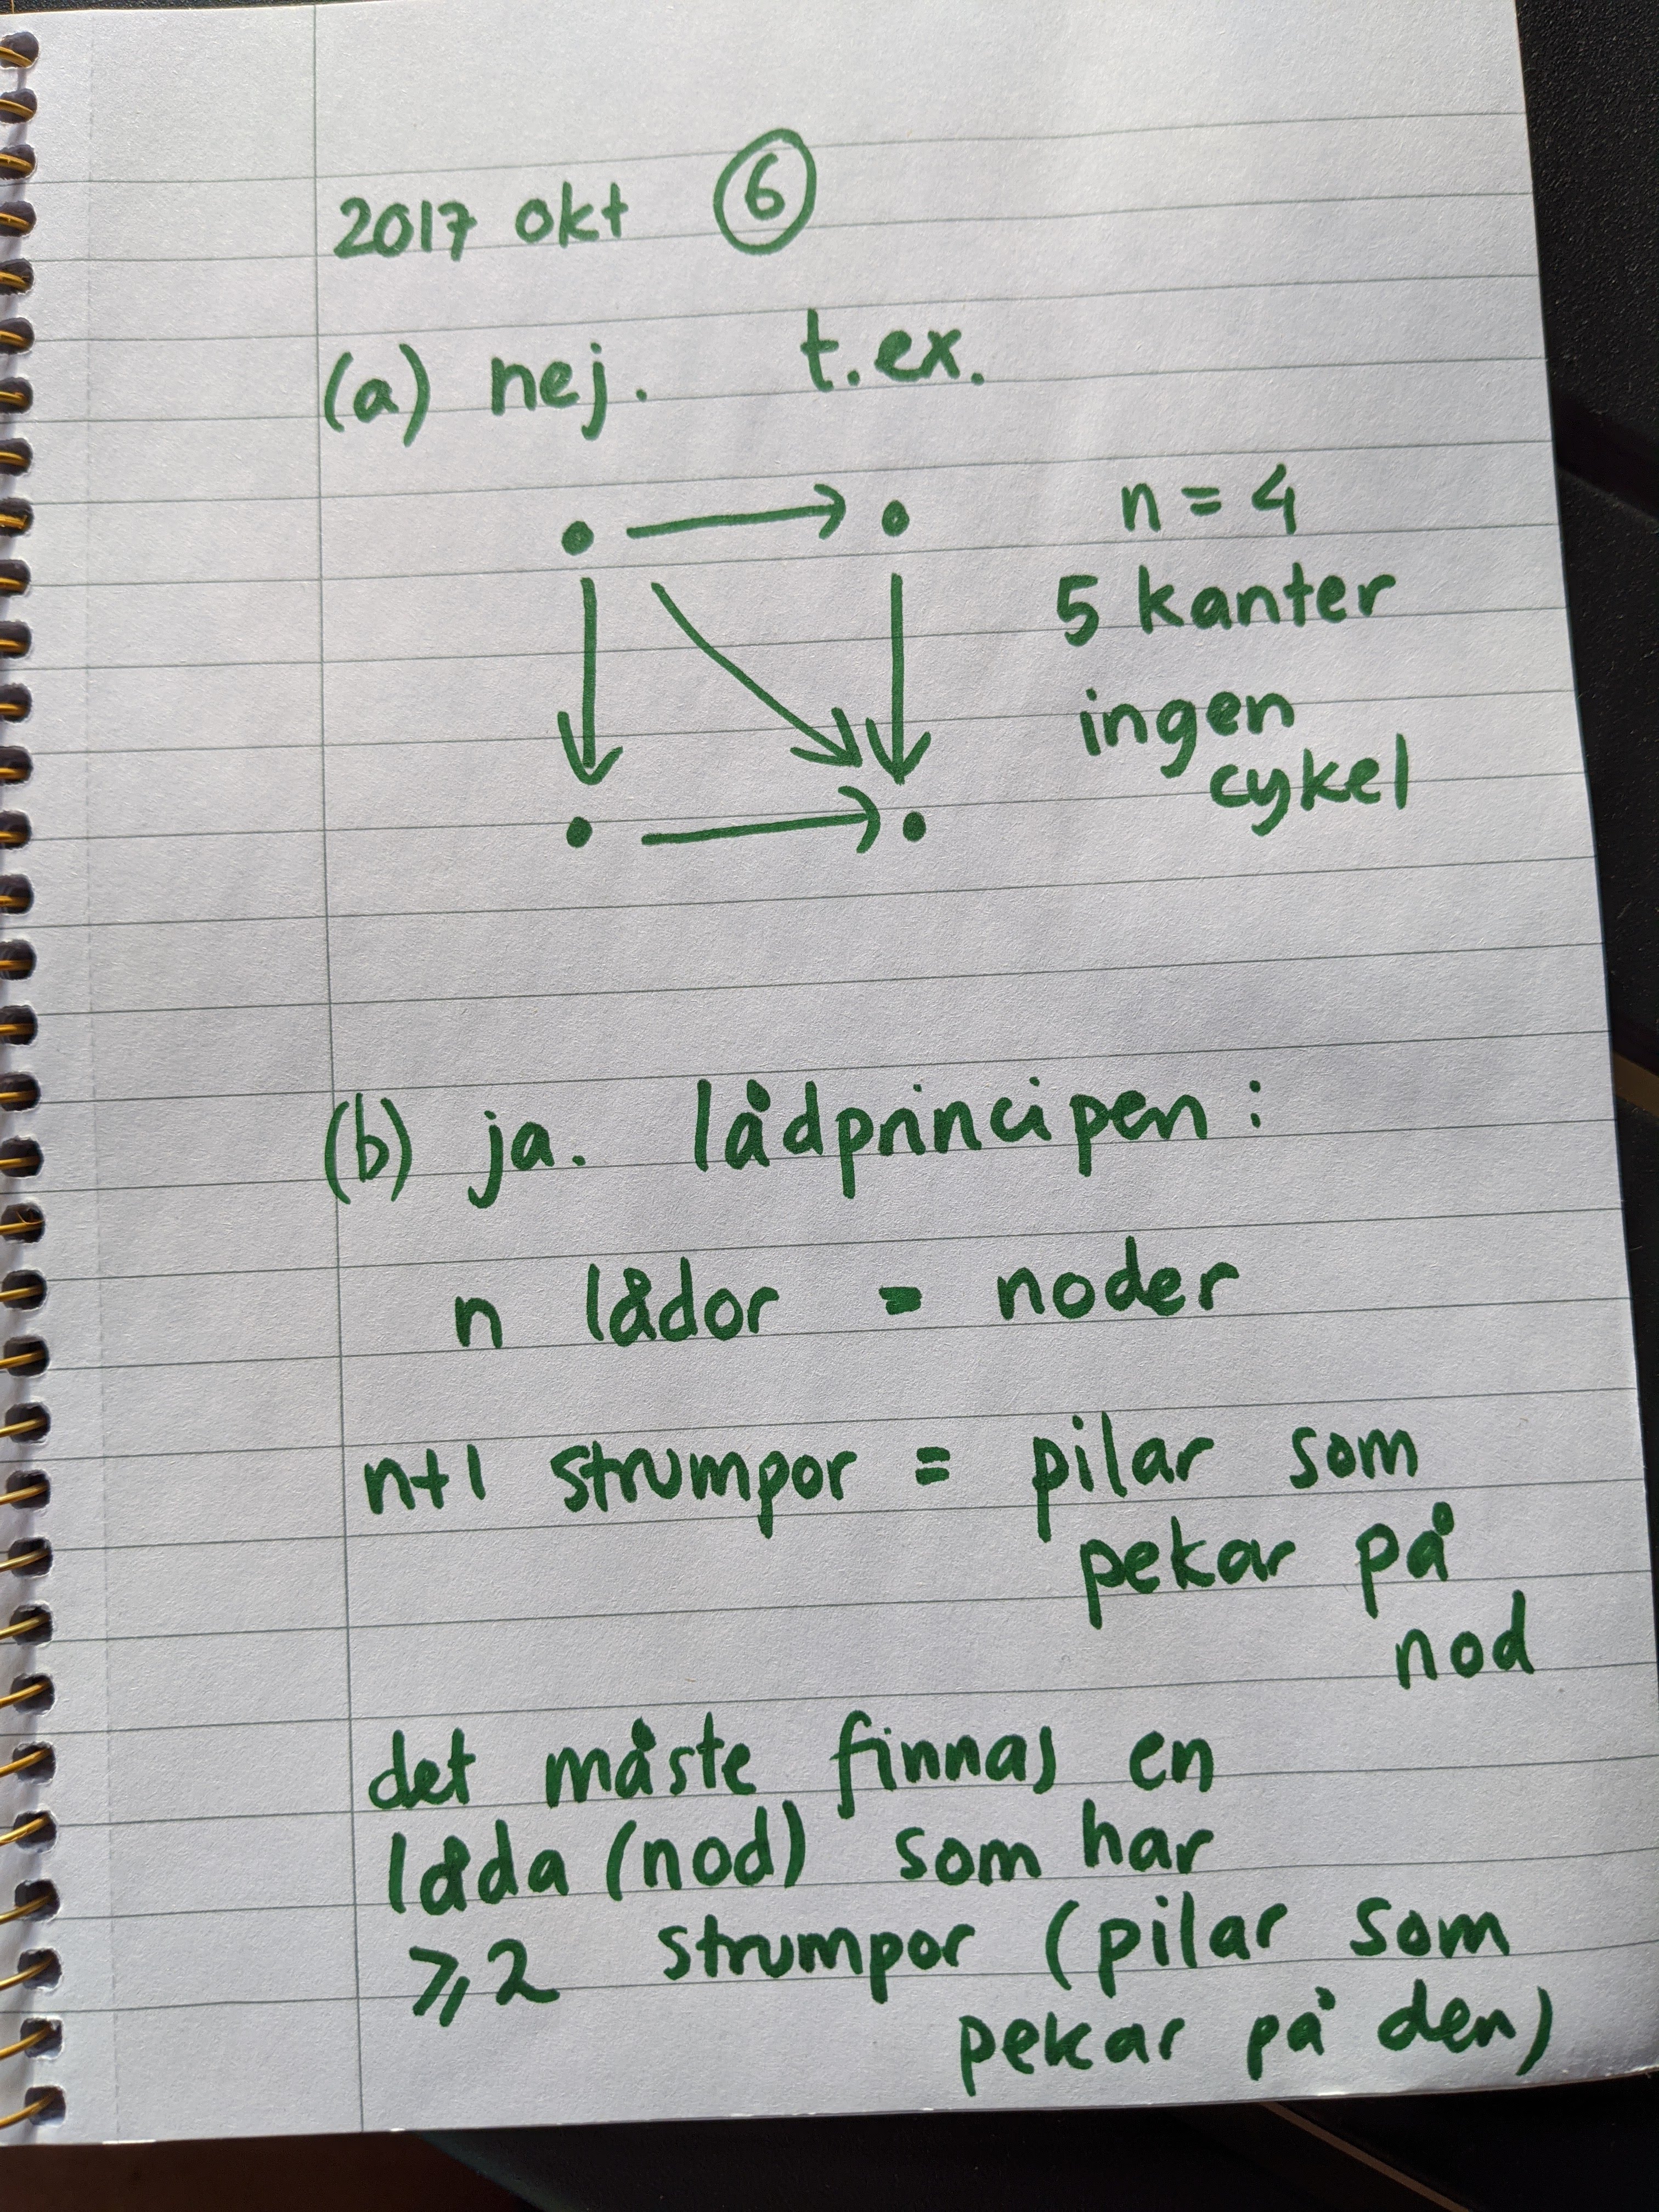 2017 okt 6
(a) nej. t.ex.
n = 4
5 kanter
ingen
cykel
(b) ja. lådprincipen:
n lådor = noder
n+1 strumpor = pilar som
pekar på
nod
det måste finnas en
låda (nod) som har
≥2 strumpor (pilar som
pekar på den)